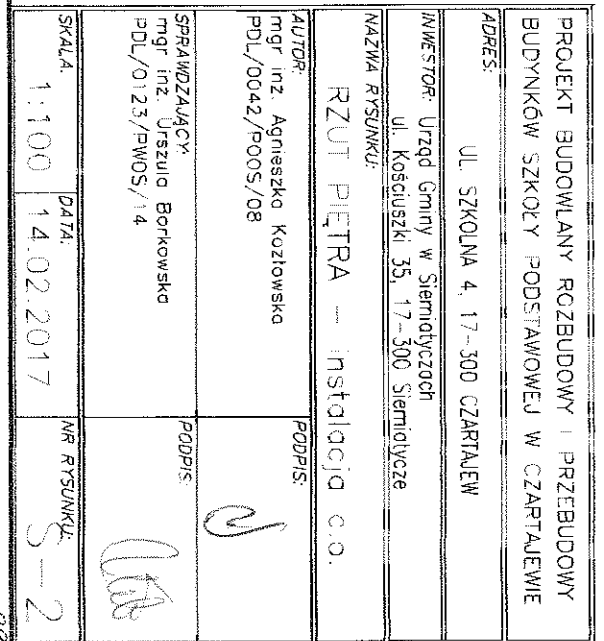 PROJEKT BUDOWLANY ROZBUDOWY I PRZEBUDOWY
BUDYNKÓW SZKOŁY PODSTAWOWEJ W CZARTAJEWIE
ADRES:
UL. SZKOLNA 4, 17-300 CZARTAJEW
INWESTOR: Urząd Gminy w Siemiatyczach
ul. Kościuszki 35, 17-300 Siemiatycze
NAZWA RYSUNKU:
RZUT PIĘTRA — instalacja c.o.
AUTOR:
mgr inż. Agnieszka Kozłowska
PDL/0042/POOS/08
PODPIS:
SPRAWDZAJĄCY:
mgr inż. Urszula Borkowska
PDL/0123/PWOS/14
PODPIS:
SKALA:
1:100
DATA:
14.02.2017
NR RYSUNKU:
S-2